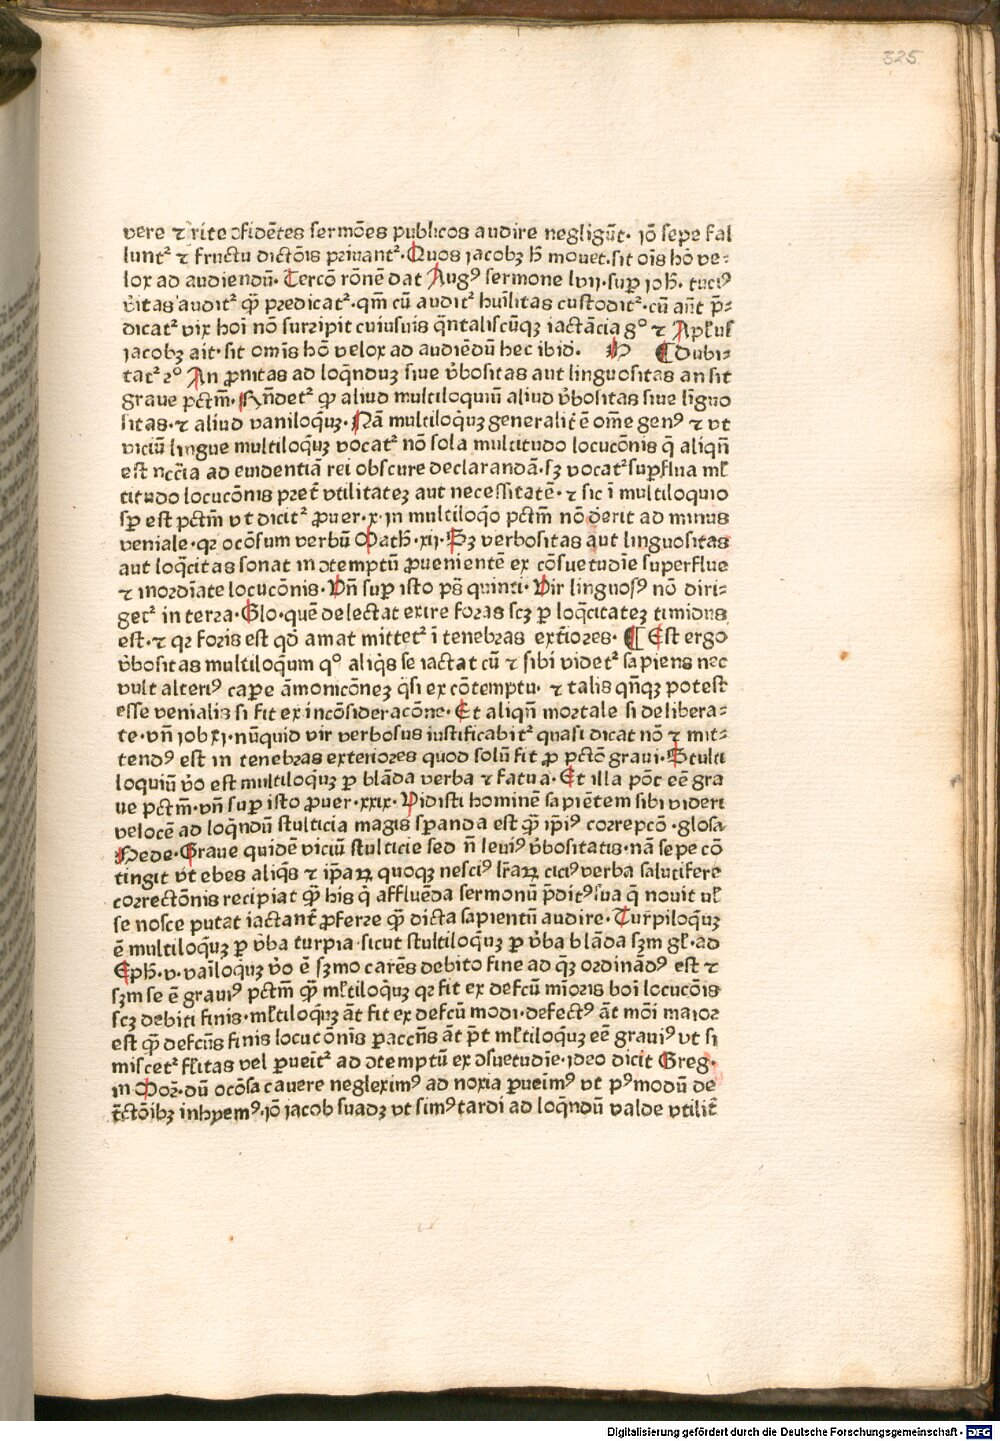 325
vere ⁊ rite ɔfidētes sermōes publicos audire negligūt· iō sepe fal
luntᷣ ⁊ fructu dictōis priuantᷣ· Quos iacobꝫ h̄ mouet·sit oīs hō ve⸗
lox ad audiendū· Tercō rōnē dat Augꝰ sermone lvij·suꝑ ioh̄· tuciꝰ
v̄itas auditᷣ qᷓ predicatᷣ·qm̄ cū auditᷣ huīlitas custoditᷣ·cū aūt p̄⸗
dicatᷣ vix hoī nō surripit cuiusuis q̄ntaliscūqꝫ iactācia gͦ ⁊ Apl̄us
iacobꝫ ait·sit omīs hō velox ad audiēdū hec ibid̄· ¶ Dubi⸗
tatᷣ 2ͦ An ꝓnitas ad loq̄nduꝫ siue v̄bositas aut linguositas an sit
graue pctm̄· Rn̄detᷣ ꝙ aliud multiloquiū aliud v̄bositas siue līguo
sitas·⁊ aliud vaniloqͥuꝫ· Nā multiloqͥuꝫ generalit̄ ē om̄e genꝰ ⁊ vt
viciū lingue multiloqͥuꝫ vocatᷣ nō sola multitudo locucōnis q̄ aliqn̄
est nccīa ad euidentiā rei obscure declarandā·sꝫ vocatᷣ suꝑflua ml̄
titudo locucōnis pret̄ vtilitateꝫ aut necessitatē·⁊ sic ī multiloquio
sꝑ est pctm̄ vt dicitᷣ ꝓuer·x·in multiloqͥo pctm̄ nō deerit ad minus
veniale·qꝛ ocōsum verbū Math̄·xij· Sꝫ verbositas aut linguositas
aut loqͣcitas sonat in ɔtemptū ꝓuenientē ex cōsuetudīe superflue
⁊ inordīate locucōnis· Vn̄ suꝑ isto ps̄ quinti· Vir linguosꝰ nō diri⸗
getᷣ in terra· Glo·quē delectat exire foras scꝫ ꝑ loqͣcitateꝫ timidus
est·⁊ qꝛ foris est qd̄ amat mittetᷣ ī tenebras ext̄iores· ¶ Est ergo
v̄bositas multiloqͥum qͦ aliqͥs se iactat cū ⁊ sibi videtᷣ sapiens nec
vult alteriꝰ capere āmonicōneꝫ qͣsi ex cōtemptu· ⁊ talis qn̄qꝫ potest
esse venialis si fit ex incōsideracōne· Et aliqn̄ mortale si delibera⸗
te·vn̄ iob xj·nūquid vir verbosus iustificabitᷣ quasi dicat nō ⁊ mit⸗
tendꝰ est in tenebras exteriores quod solū fit ꝓ pctō graui· Stulti
loquiū v̄o est multiloqͥuꝫ ꝑ blāda verba ⁊ fatua· Et illa pōt eē gra
ue pctm̄·vn̄ suꝑ isto ꝓuer·xxix· Vidisti hominē sapiētem sibi videri
velocē ad loq̄ndū stulticia magis sꝑanda est qᷓ ip̄iꝰ correpcō·glosa
Bede· Graue quidē viciū stulticie sed n̄ leuiꝰ v̄bositatis·nā sepe cō
tingit vt ebes aliqͥs ⁊ ip̄aꝝ quoqꝫ nesciꝰ lr̄aꝝ ciciꝰ verba salutifere
correctōnis recipiat qᷓ his qͥ affluēda sermonū p̄ditꝰ sua qͥ nouit ul̄
se nosce putat iactant̄ ꝓferre qᷓ dicta sapientū audire· Tur̄piloqͥuꝫ
ē multiloqͥuꝫ ꝑ v̄ba turpia·sicut stultiloqͥuꝫ ꝑ v̄ba blāda sꝫm gl̄·ad
Eph̄·v·vaīloqͥuꝫ v̄o ē sꝫmo carēs debito fine ad qͣꝫ ordinādꝰ est ⁊
sꝫm se ē grauiꝰ pctm̄ qᷓ ml̄tiloqͥuꝫ qꝛ fit ex defcū mīoris boī locucōis
scꝫ debiti finis·ml̄tiloqͥuꝫ āt fit ex defcū modi·defectꝰ āt mōi maior
est qᷓ defcūs finis locucōnis ꝑ accn̄s āt p̄t ml̄tiloqͥuꝫ eē grauiꝰ vt si
miscetᷣ fl̄itas vel ꝓueītᷣ ad ɔtemptū ex ɔsuetudīe·ideo dicit Greg·
in Mor̄·dū ocōsa cauere neglexim̄ꝰ ad noxia ꝓueimꝰ vt pꝰmodū de
t̄ctōibꝫ inhyemꝰ·iō iacob suadꝫ vt simꝰ tardi ad loq̄ndū valde vtilit̄
Digitalisierung gefördert durch die Deutsche Forschungsgemeinschaft - DFG